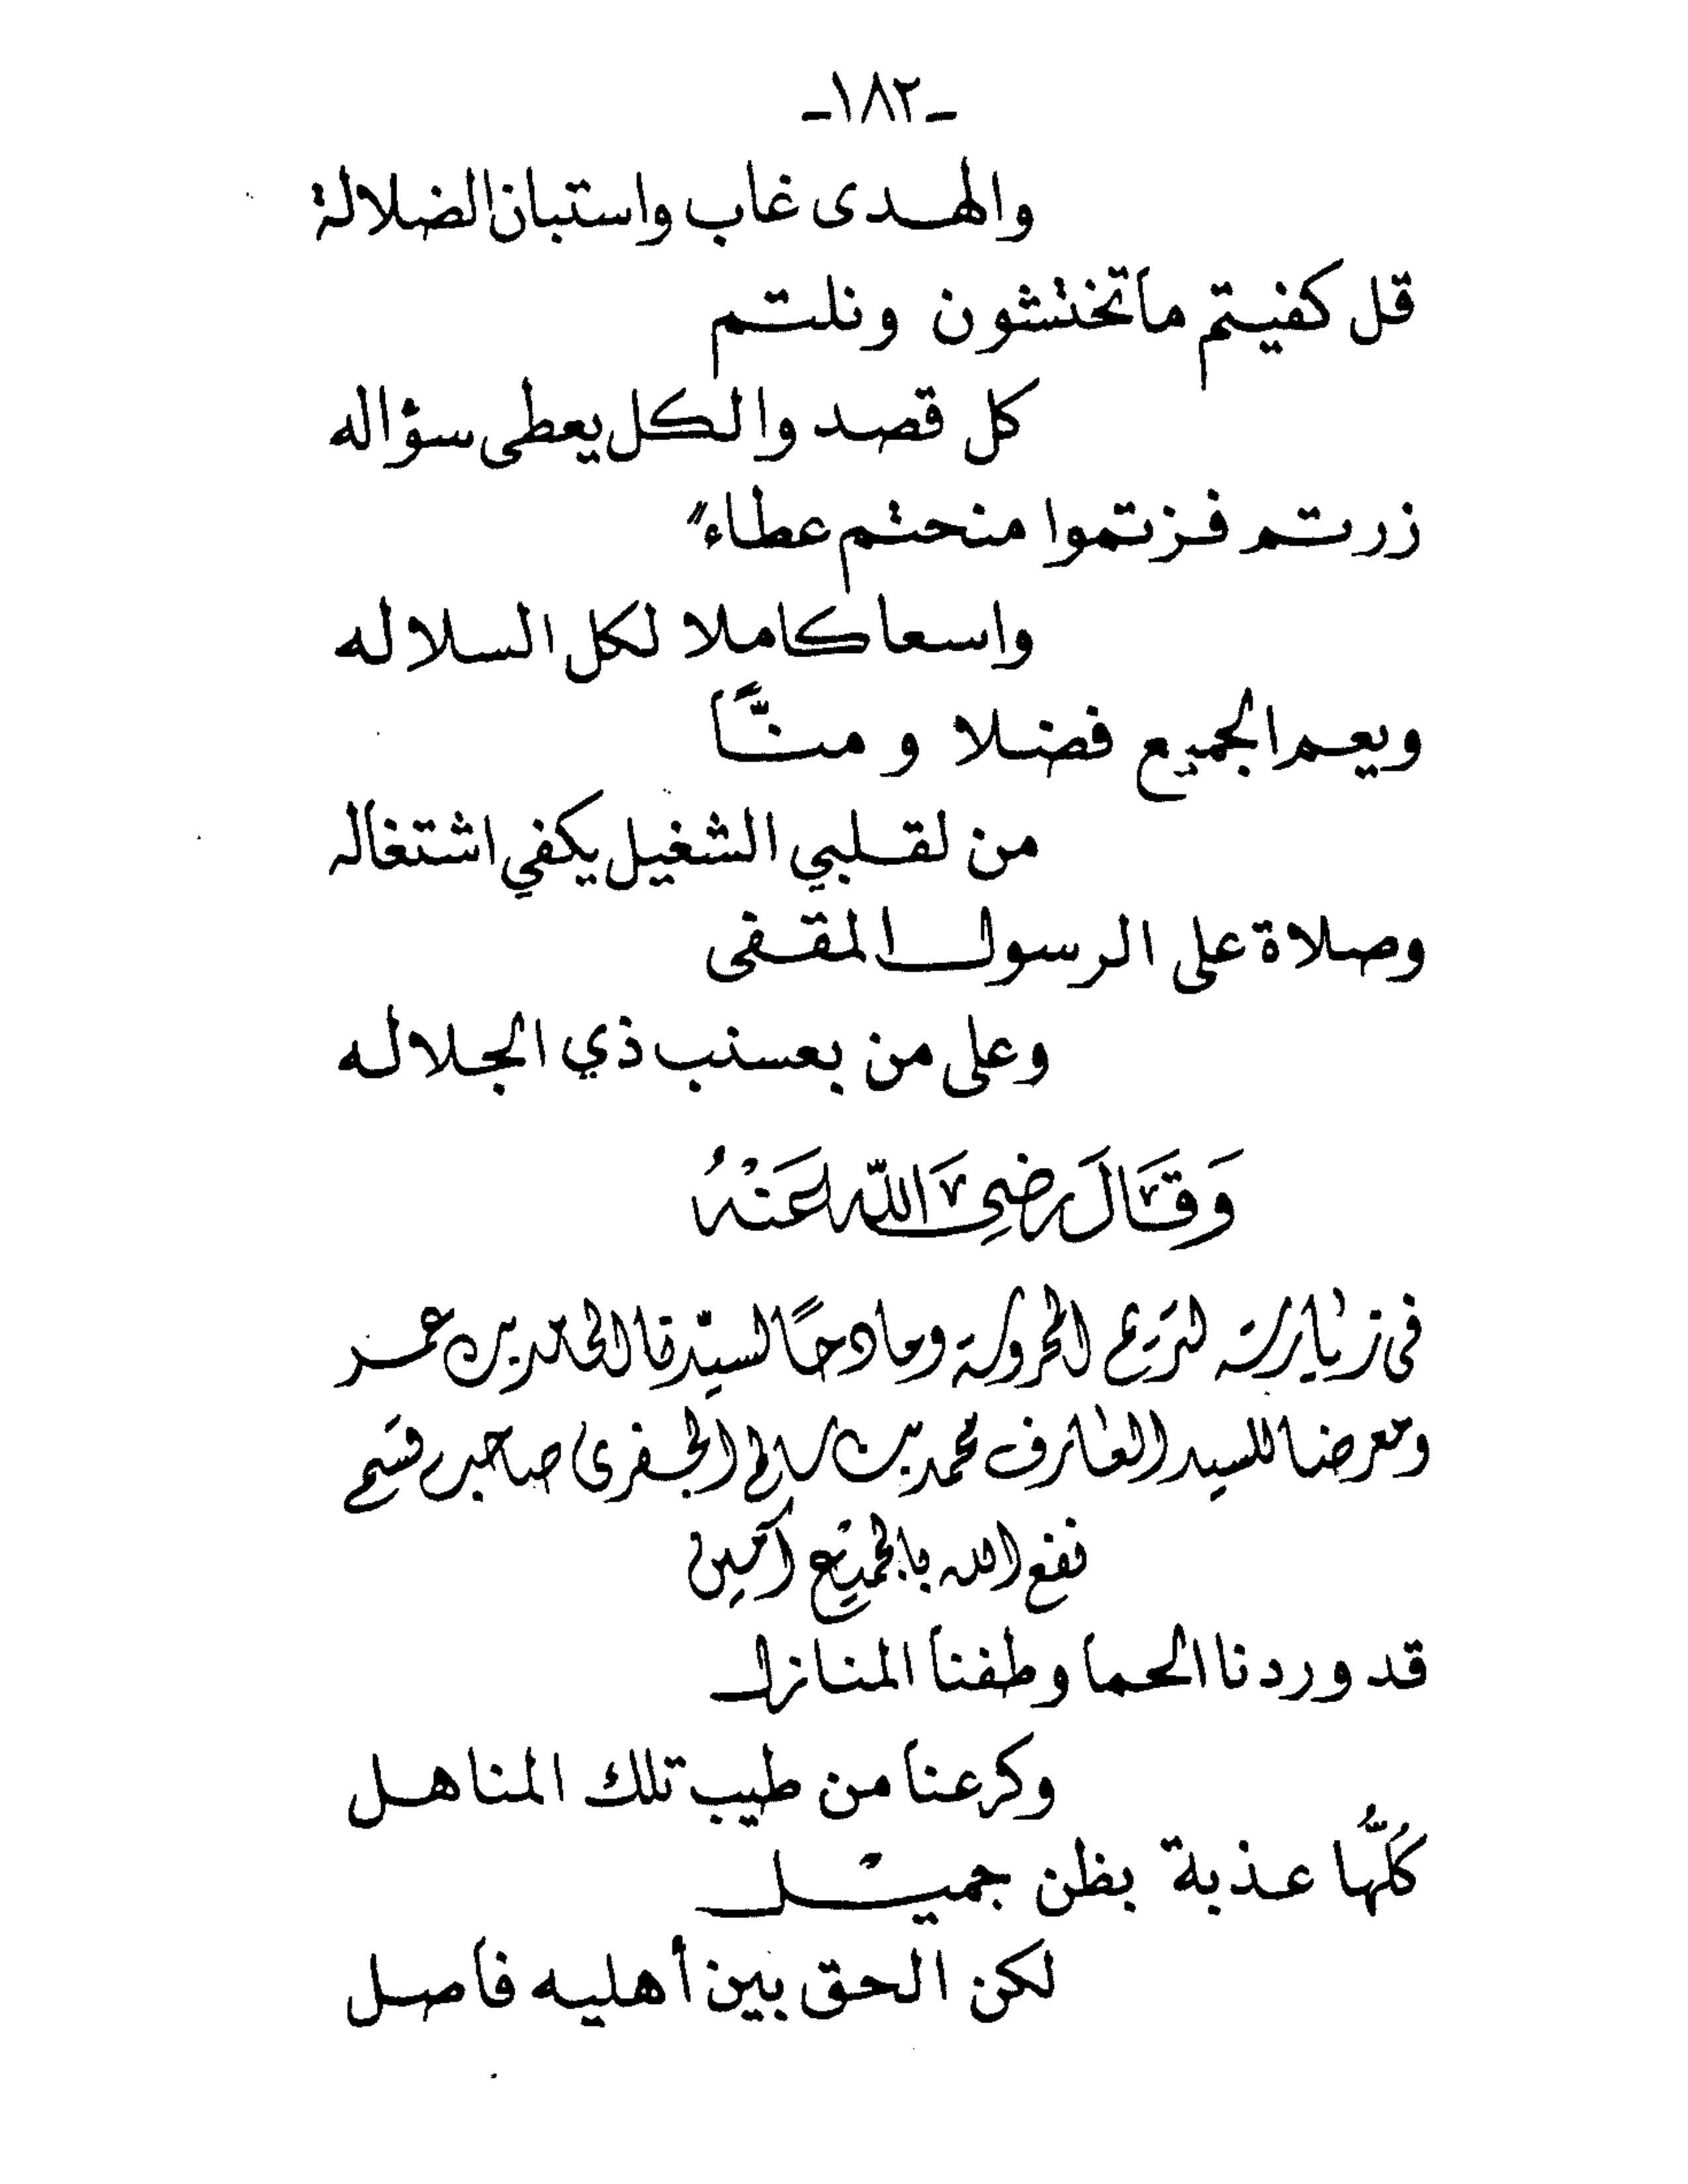 -١٨٢-
والهدى غاب واستبان الضلالة
قل كفيتم ماتختشون ونلتم
كل قصد والكل يعطى سؤاله
زرتم فزتموا منحتم عطاءً
واسعا كاملا لكل السلاله
ويعم الجميع فضلا ومنًّا
من لقلبي الشغيل يكفي اشتغاله
وصلاة على الرسول المقفى
وعلى من بعسنب ذي الجلاله
وَقَالَ رَضِيَ اللّه عَنْهُ
في زيارته لتريم المحروسة ومادحًا لسيّدنا الحامد بن عمر
ومعرضا للسيد العارف محمد بن سالم الجفري صاحب قسم
نفع الله بالجميع آمين
قد وردنا الحما وطفنا المنازل
وكرعنا من طيب تلك المناهل
كُلُّها عذبة بظن جميل
لكن الحق بين أهليه فاصل